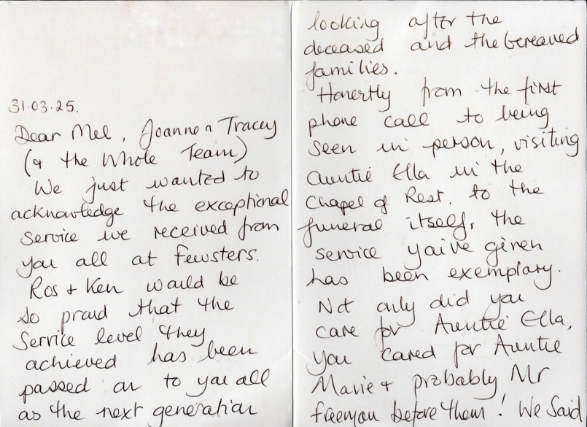 31.03.25.
Dear Mel, Joanne & Tracey
(& the Whole Team)
We just wanted to
acknowledge the exceptional
Service we received from
you all at fewsters.
Ros + Ken would be
so proud that the
Service level they
achieved has been
passed on to you all
as the next generation
looking after the
deceased and the bereaved
families.
Honestly from the first
phone call to being
seen in person, visiting
Auntie Ella in the
Chapel of Rest, to the
funeral itself, the
service you've given
has been exemplary.
Not only did you
care for Auntie Ella,
you cared for Auntie
Marie + probably Mr
freeman before them! We Said